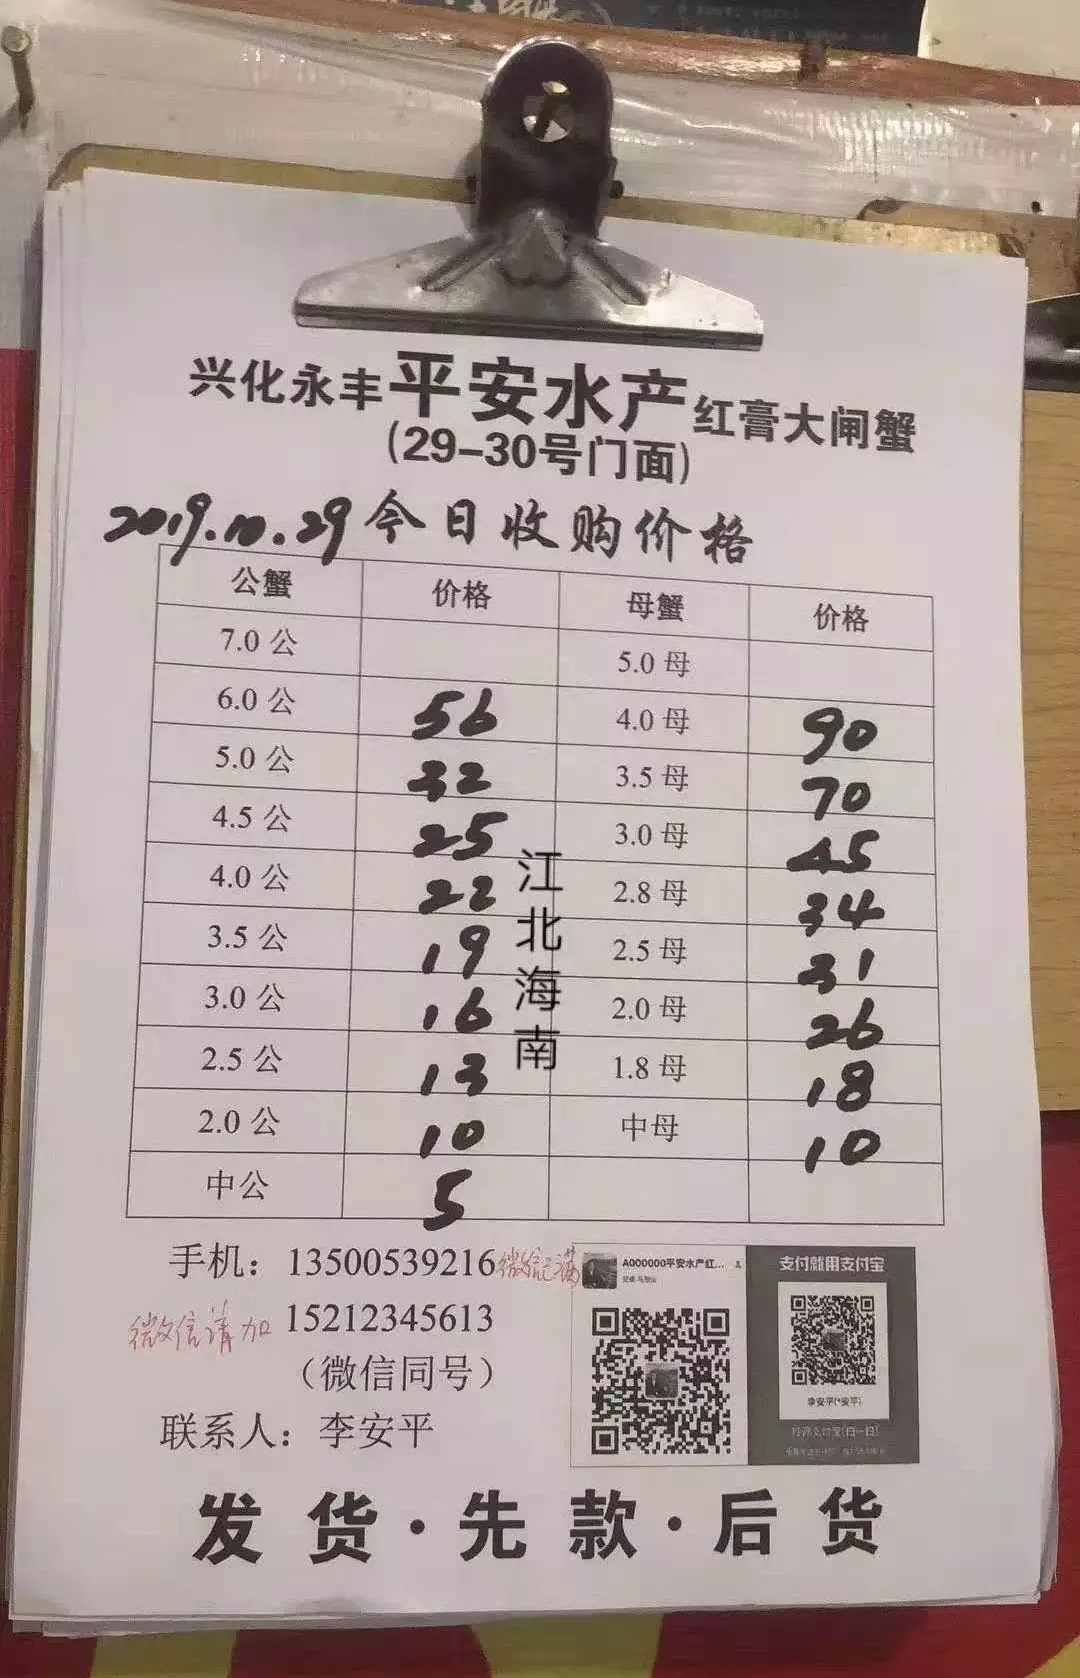 兴化永丰平安水产红膏大闸蟹
(29-30号门面)
2019.10.29 今日收购价格
公蟹 价格 母蟹 价格
7.0 公 5.0 母
6.0 公 56 4.0 母 90
5.0 公 32 3.5 母 70
4.5 公 25 3.0 母 45
4.0 公 22 2.8 母 34
3.5 公 19 2.5 母 31
3.0 公 16 2.0 母 26
2.5 公 13 1.8 母 18
2.0 公 10 中母 10
中公 5
江北海南
手机：13500539216 微信已满
微信请加 15212345613
（微信同号）
联系人：李安平
A000000平安水产红...
支付就用支付宝
李安平(*安平)
发货·先款·后货